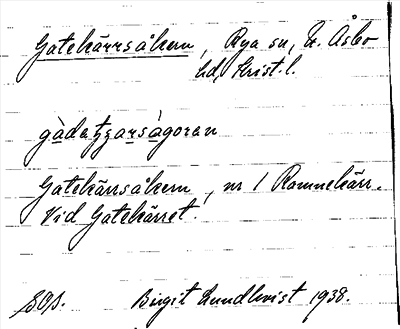 Gatekärrsåkern, Rya sn, N. Åsbo
hd, Krist. l.
gàdeʈʂarsàgoran
Gatekärrsåkern, nr 1 Ramnekärr.
Vid Gatekärret.
Birgit Lundkvist 1938.